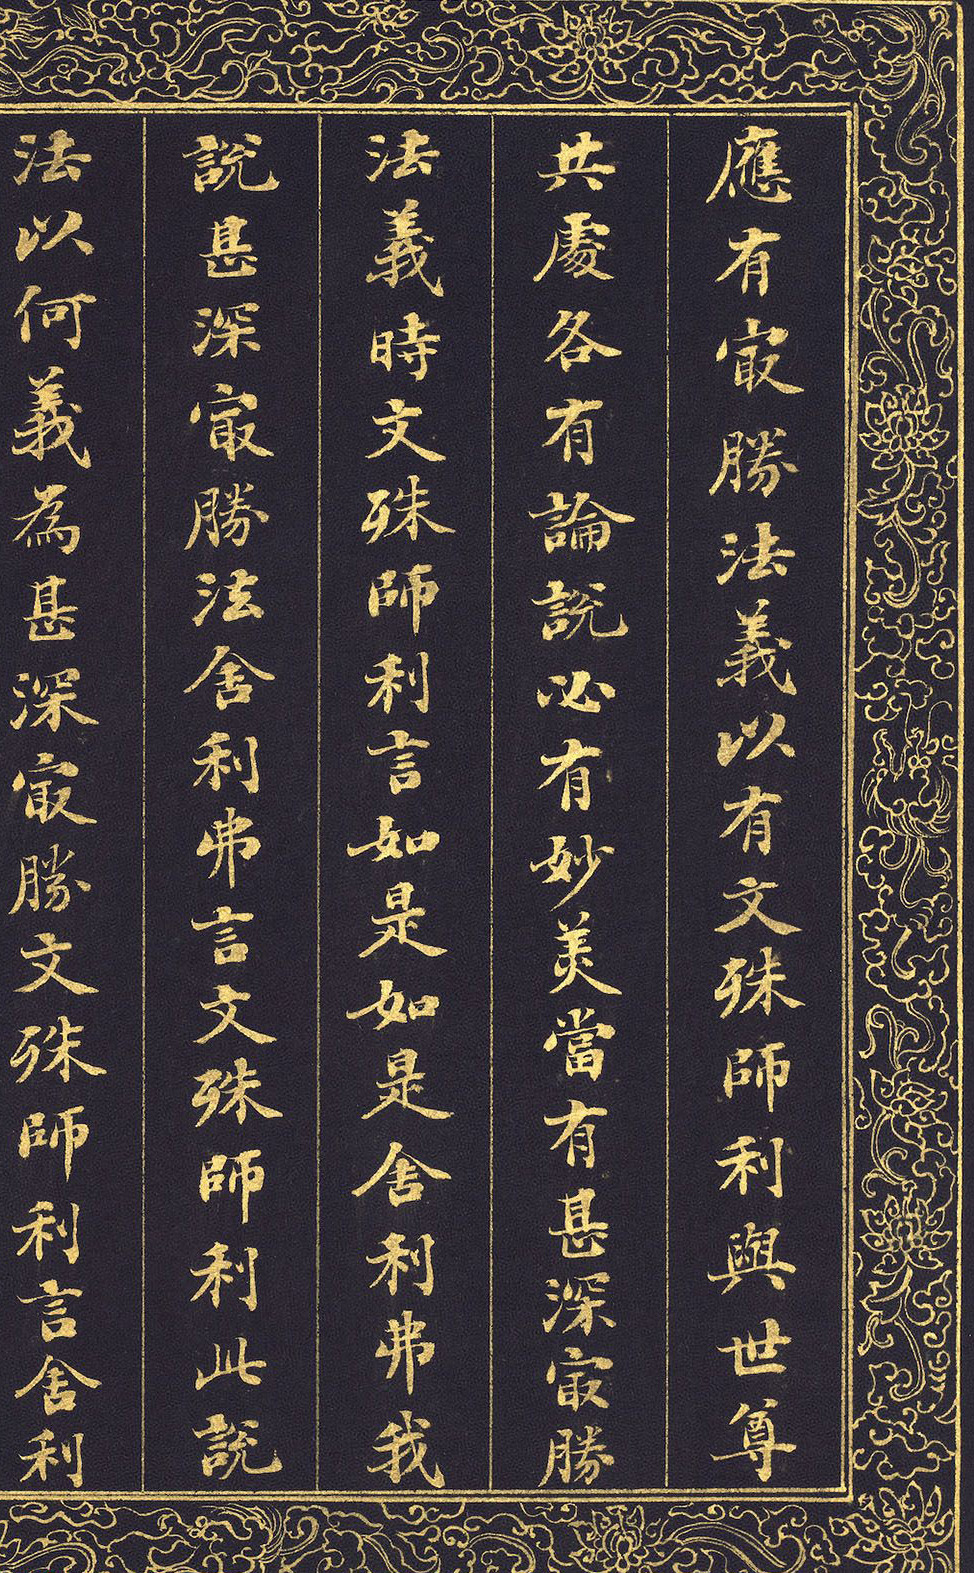 應有冣勝法義以有文殊師利與世尊
共處各有論說必有妙美當有甚深冣勝
法義時文殊師利言如是如是舍利弗我
說甚深冣勝法舍利弗言文殊師利此說
法以何義為甚深冣勝文殊師利言舍利